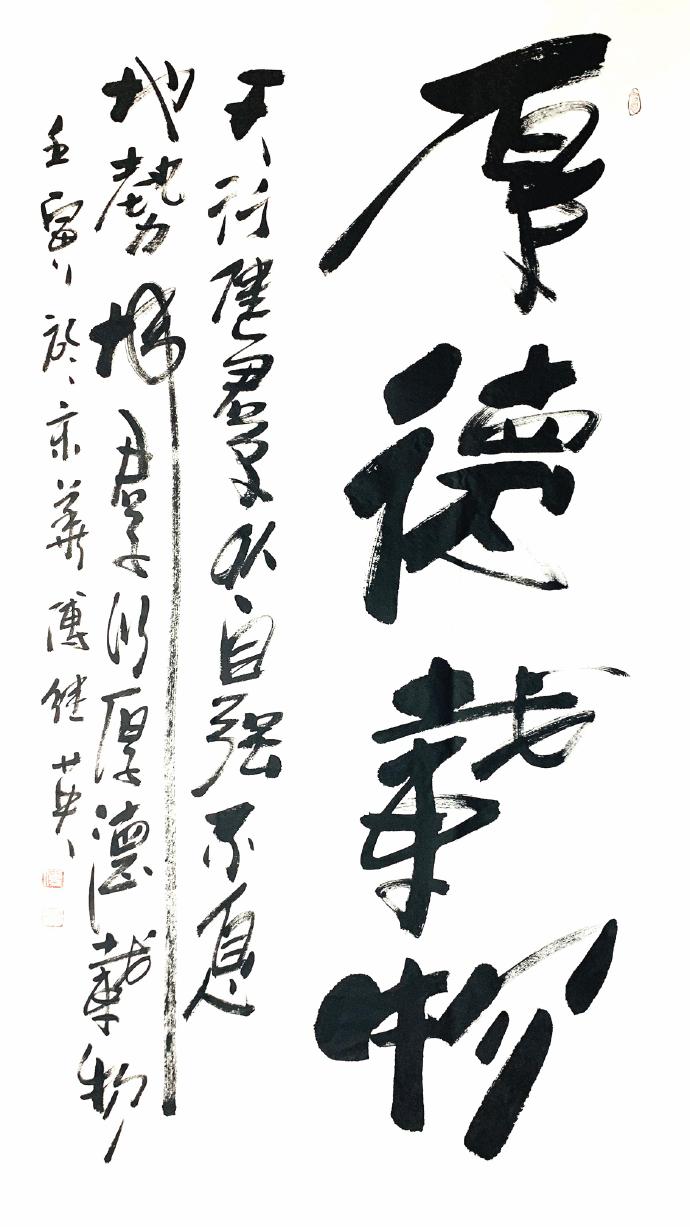 厚德載物
天行健君子以自强不息
地勢坤君子以厚德載物
壬寅於京華傅继英